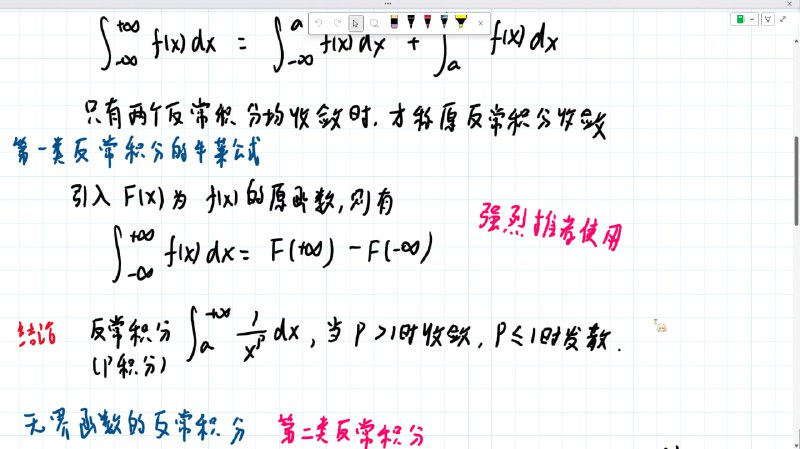 ∫_{-∞}^{+∞} f(x)dx = ∫_{-∞}^{a} f(x)dx + ∫_{a} f(x)dx
只有两个反常积分均收敛时,才称原反常积分收敛
第一类反常积分的牛莱公式
引入 F(x)为 f(x)的原函数,则有
强烈推荐使用
∫_{-∞}^{+∞} f(x)dx = F(+∞) - F(-∞)
结论 反常积分 ∫_{a}^{+∞} 1/x^p dx, 当 P>1时收敛, P≤1时发散.
(P积分)
无界函数的反常积分 第二类反常积分